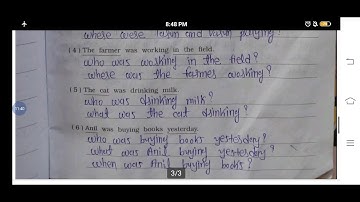 8:48 PM
where were Tarun and Varun playing?
(4) The farmer was working in the field.
who was working in the field?
where was the farmer working?
(5) The cat was drinking milk.
who was drinking milk?
what was the cat drinking?
(6) Anil was buying books yesterday.
who was buying books yesterday?
what was Anil buying yesterday?
when was Anil buying books?
3/3